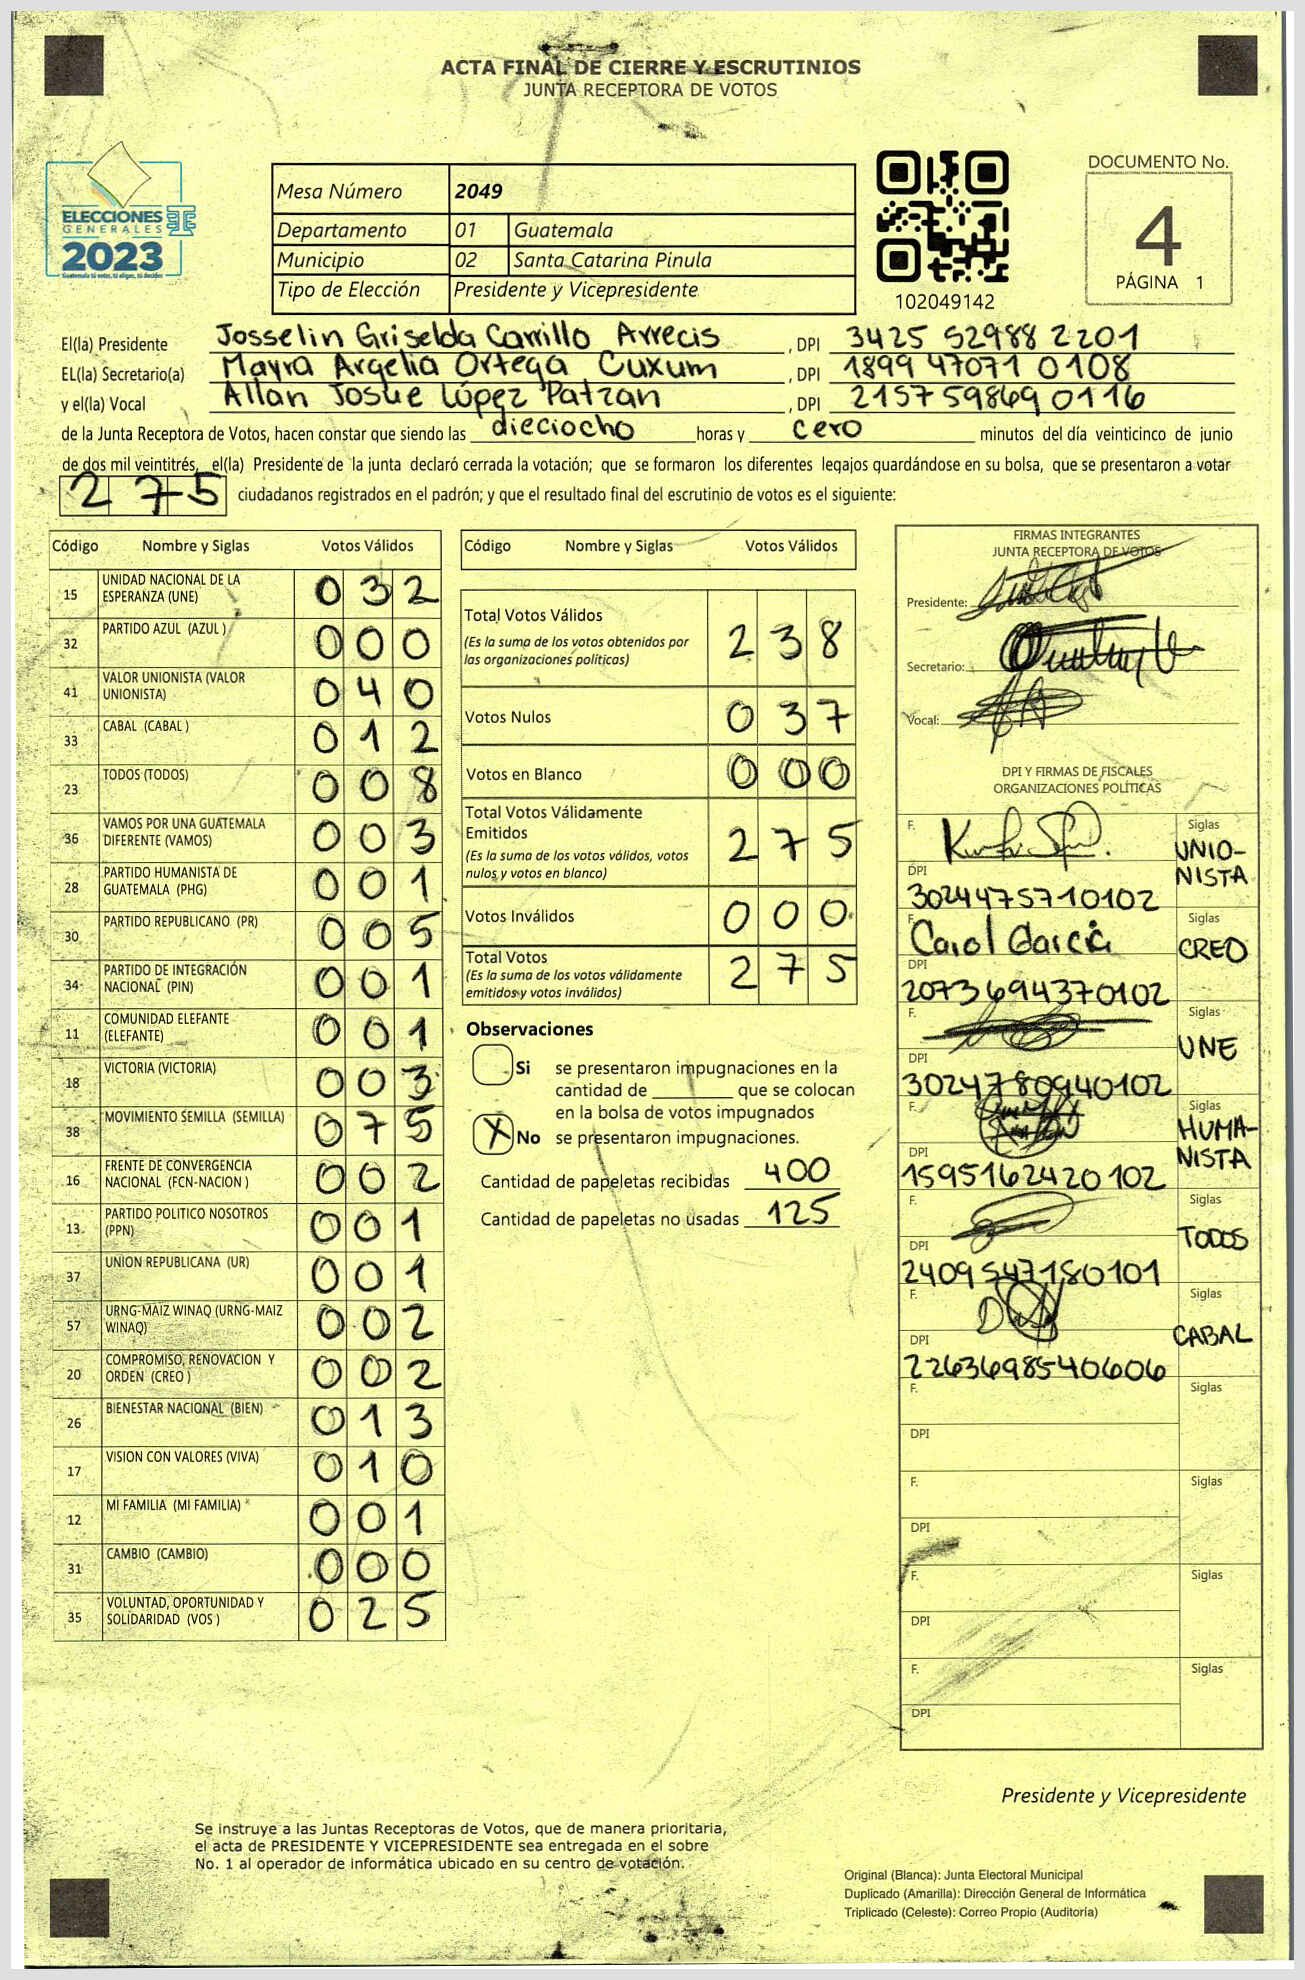 ACTA FINAL DE CIERRE Y ESCRUTINIOS
JUNTA RECEPTORA DE VOTOS
ELECCIONES
GENERALES
2023
Guatemala tú votas, tú eliges, tú decides
Mesa Número 2049
Departamento 01 Guatemala
Municipio 02 Santa Catarina Pinula
Tipo de Elección Presidente y Vicepresidente
102049142
DOCUMENTO No.
4
PÁGINA 1
El(la) Presidente Josselin Griselda Carrillo Arrecis , DPI 3425 52988 2201
EL(la) Secretario(a) Mayra Argelia Ortega Cuxum , DPI 1899 47071 0108
y el(la) Vocal Allan Josue López Patzan , DPI 2157 59869 0116
de la Junta Receptora de Votos, hacen constar que siendo las dieciocho horas y cero minutos del día veinticinco de junio
de dos mil veintitrés, el(la) Presidente de la junta declaró cerrada la votación; que se formaron los diferentes legajos guardándose en su bolsa, que se presentaron a votar
275 ciudadanos registrados en el padrón; y que el resultado final del escrutinio de votos es el siguiente:
Código Nombre y Siglas Votos Válidos
15 UNIDAD NACIONAL DE LA ESPERANZA (UNE) 032
32 PARTIDO AZUL (AZUL ) 000
41 VALOR UNIONISTA (VALOR UNIONISTA) 040
33 CABAL (CABAL ) 012
23 TODOS (TODOS) 008
36 VAMOS POR UNA GUATEMALA DIFERENTE (VAMOS) 003
28 PARTIDO HUMANISTA DE GUATEMALA (PHG) 001
30 PARTIDO REPUBLICANO (PR) 005
34 PARTIDO DE INTEGRACIÓN NACIONAL (PIN) 001
11 COMUNIDAD ELEFANTE (ELEFANTE) 001
18 VICTORIA (VICTORIA) 003
38 MOVIMIENTO SEMILLA (SEMILLA) 075
16 FRENTE DE CONVERGENCIA NACIONAL (FCN-NACION ) 002
13 PARTIDO POLITICO NOSOTROS (PPN) 001
37 UNION REPUBLICANA (UR) 001
57 URNG-MAIZ WINAQ (URNG-MAIZ WINAQ) 002
20 COMPROMISO, RENOVACION Y ORDEN (CREO ) 002
26 BIENESTAR NACIONAL (BIEN) 013
17 VISION CON VALORES (VIVA) 010
12 MI FAMILIA (MI FAMILIA) 001
31 CAMBIO (CAMBIO) 000
35 VOLUNTAD, OPORTUNIDAD Y SOLIDARIDAD (VOS ) 025
Código Nombre y Siglas Votos Válidos
Total Votos Válidos 238
(Es la suma de los votos obtenidos por
las organizaciones políticas)
Votos Nulos 037
Votos en Blanco 000
Total Votos Válidamente
Emitidos 275
(Es la suma de los votos válidos, votos
nulos y votos en blanco)
Votos Inválidos 000
Total Votos 275
(Es la suma de los votos válidamente
emitidos y votos inválidos)
Observaciones
Si se presentaron impugnaciones en la
cantidad de ________ que se colocan
en la bolsa de votos impugnados
X No se presentaron impugnaciones.
Cantidad de papeletas recibidas 400
Cantidad de papeletas no usadas 125
FIRMAS INTEGRANTES
JUNTA RECEPTORA DE VOTOS
Presidente:
Secretario:
Vocal:
DPI Y FIRMAS DE FISCALES
ORGANIZACIONES POLÍTICAS
F. Siglas UNIO-
NISTA
DPI 3024475710102
F. Carol García Siglas CREO
DPI 2073694370102
F. Siglas UNE
DPI 3024780940102
F. Siglas HUMA-
NISTA
DPI 1595162420102
F. Siglas TODOS
DPI 2409547180101
F. Siglas CABAL
DPI 2263698540606
F. Siglas
DPI
F. Siglas
DPI
F. Siglas
DPI
F. Siglas
DPI
Presidente y Vicepresidente
Se instruye a las Juntas Receptoras de Votos, que de manera prioritaria,
el acta de PRESIDENTE Y VICEPRESIDENTE sea entregada en el sobre
No. 1 al operador de informática ubicado en su centro de votación.
Original (Blanca): Junta Electoral Municipal
Duplicado (Amarilla): Dirección General de Informática
Triplicado (Celeste): Correo Propio (Auditoría)